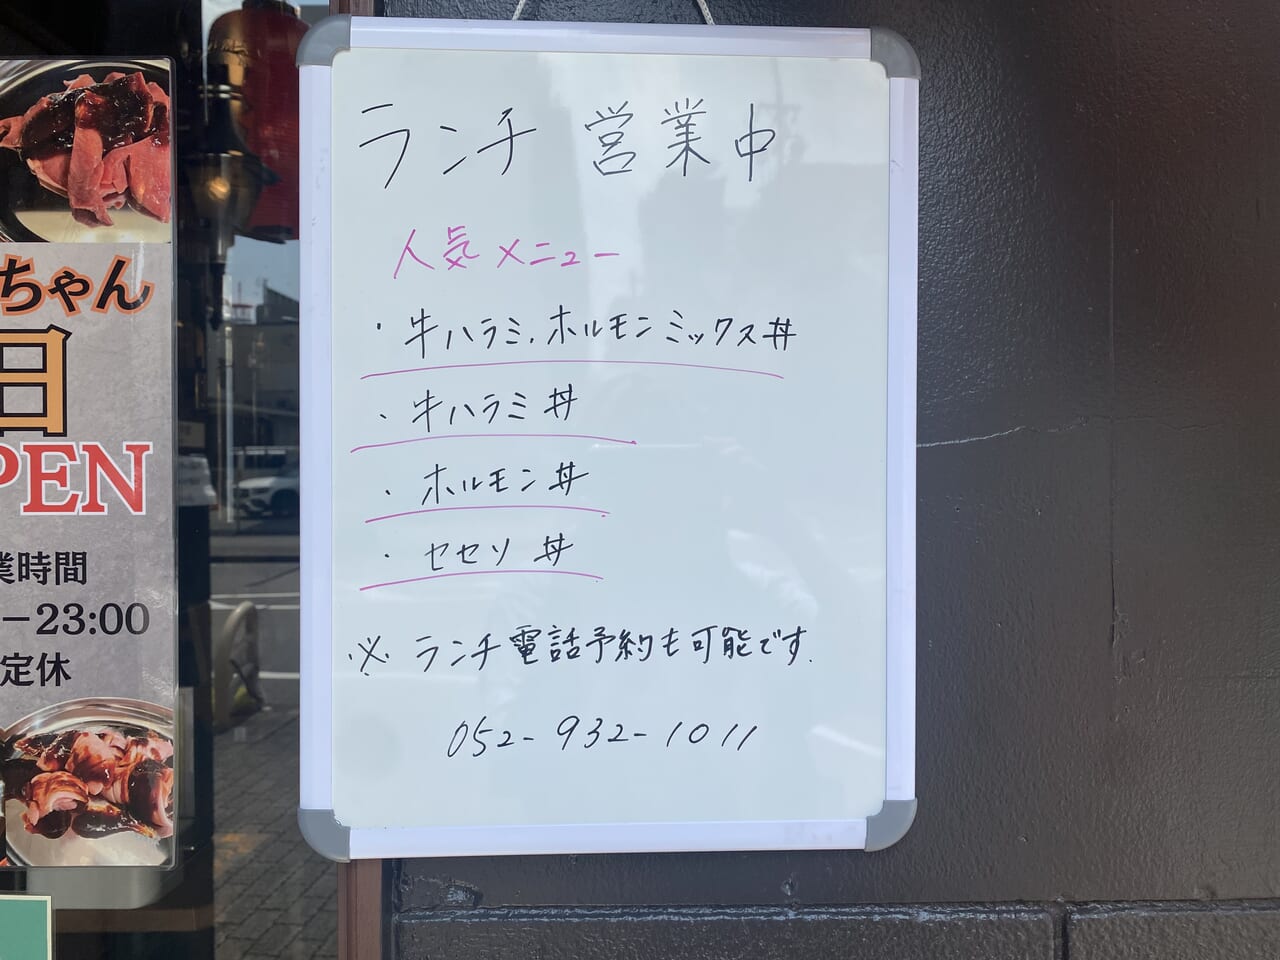 ランチ 営業中
人気メニュー
・牛ハラミ、ホルモンミックス丼
・牛ハラミ丼
・ホルモン丼
・セセリ丼
※ランチ電話予約も可能です.
052-932-1011
ちゃん
日
PEN
業時間
-23:00
定休